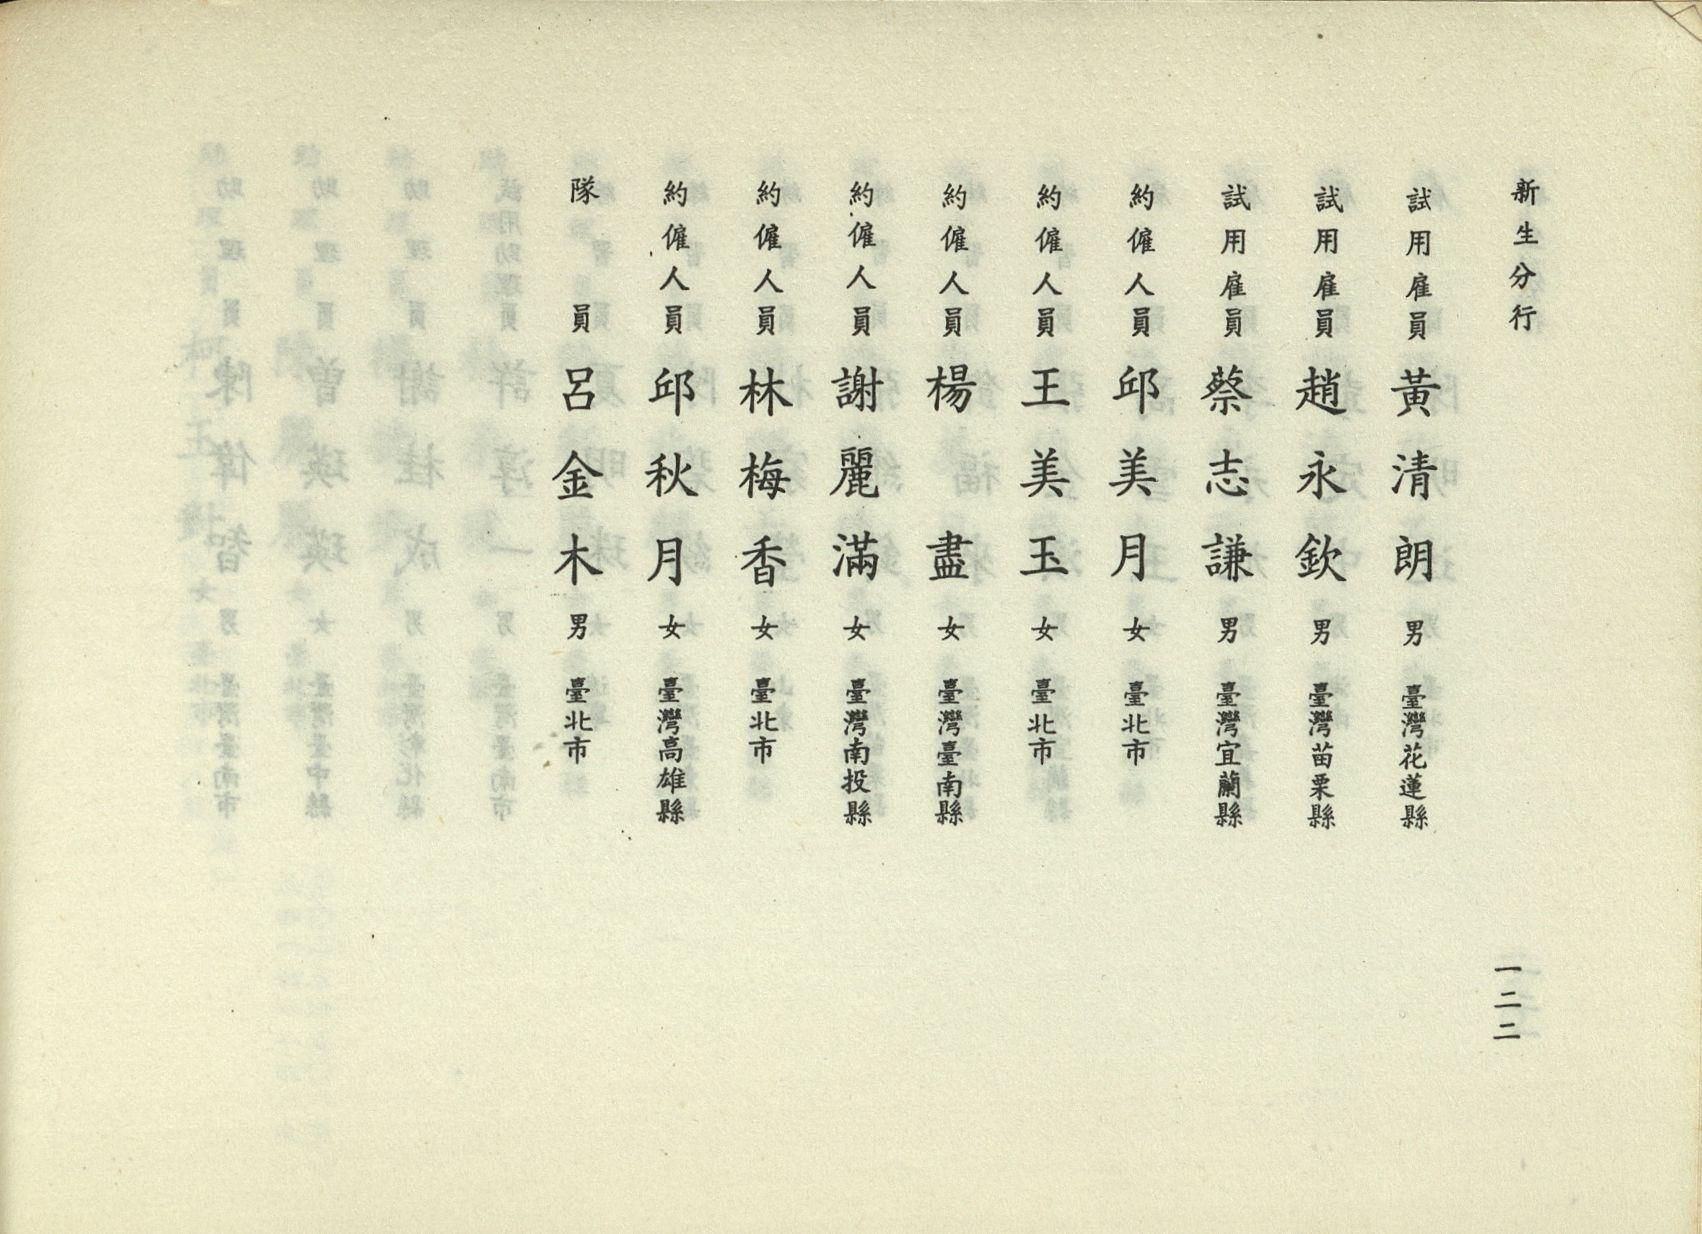 新生分行
試用雇員 黃清朗 男 臺灣花蓮縣
試用雇員 趙永欽 男 臺灣苗栗縣
試用雇員 蔡志謙 男 臺灣宜蘭縣
約僱人員 邱美月 女 臺北市
約僱人員 王美玉 女 臺北市
約僱人員 楊盡 女 臺灣臺南縣
約僱人員 謝麗滿 女 臺灣南投縣
約僱人員 林梅香 女 臺北市
約僱人員 邱秋月 女 臺灣高雄縣
隊員 呂金木 男 臺北市
一二二